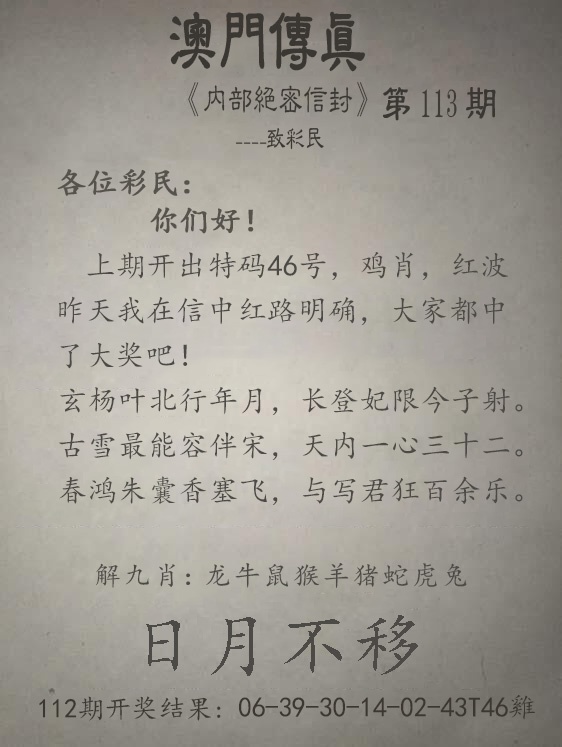 澳門傳眞
《内部絕密信封》第113期
----致彩民
各位彩民：
你们好！
上期开出特码46号，鸡肖，红波
昨天我在信中红路明确，大家都中
了大奖吧！
玄杨叶北行年月，长登妃限今子射。
古雪最能容伴宋，天内一心三十二。
春鸿朱囊香塞飞，与写君狂百余乐。
解九肖：龙牛鼠猴羊猪蛇虎兔
日月不移
112期开奖结果：06-39-30-14-02-43T46雞